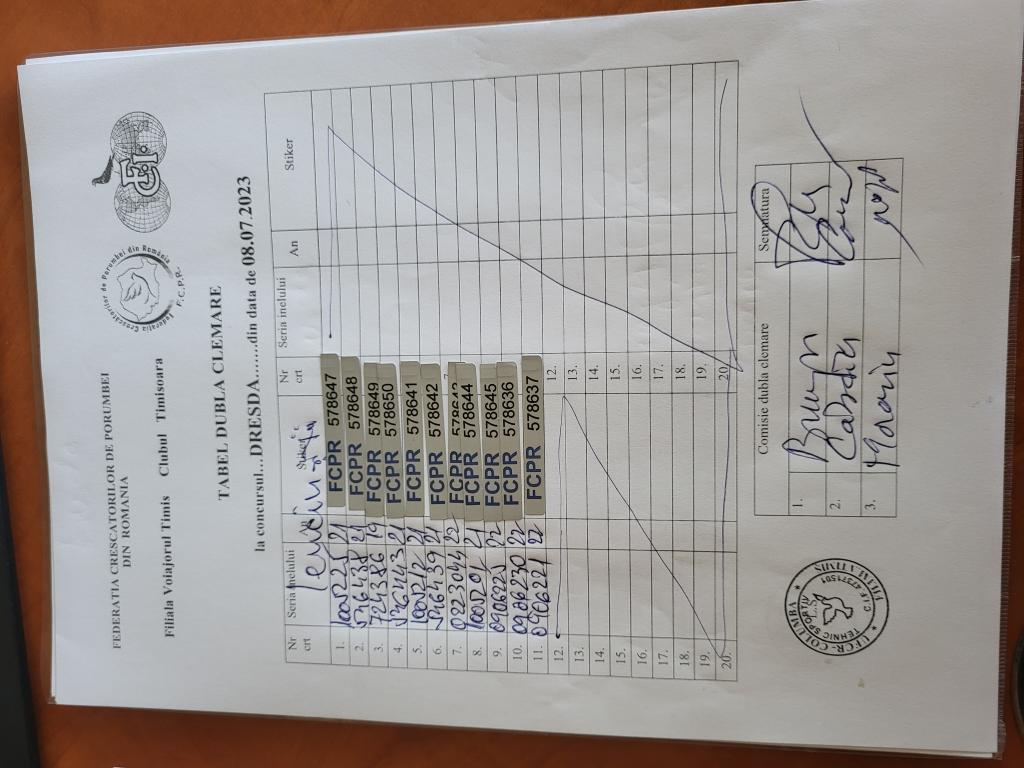 FEDERATIA CRESCATORILOR DE PORUMBEI
DIN ROMANIA
Filiala Voiajorul Timis Clubul Timisoara
Federatia Crescătorilor de Porumbei din România
F.C.P.R.
FCI
TABEL DUBLA CLEMARE
la concursul...DRESDA.......din data de 08.07.2023
Nr crt Seria inelului Stiker Nr crt Seria inelului An Stiker
1. 1005225 21 FCPR 578647
2. 5467438 21 FCPR 578648
3. 724386 19 FCPR 578649
4. 21 FCPR 578650
5. 1005212 21 FCPR 578641
6. 21 FCPR 578642
7. 0223044 22 FCPR 7.
8. 1005201 21 FCPR 578644
9. 0906225 22 FCPR 578645
10. 0906230 22 FCPR 578636
11. 0906221 22 FCPR 578637
12. 12.
13. 13.
14. 14.
15. 15.
16. 16.
17. 17.
18. 18.
19. 19.
20. 20.
Comisie dubla clemare Semnatura
1.
2.
3.
FCPR-COLUMBA
TEHNIC SPORTIV